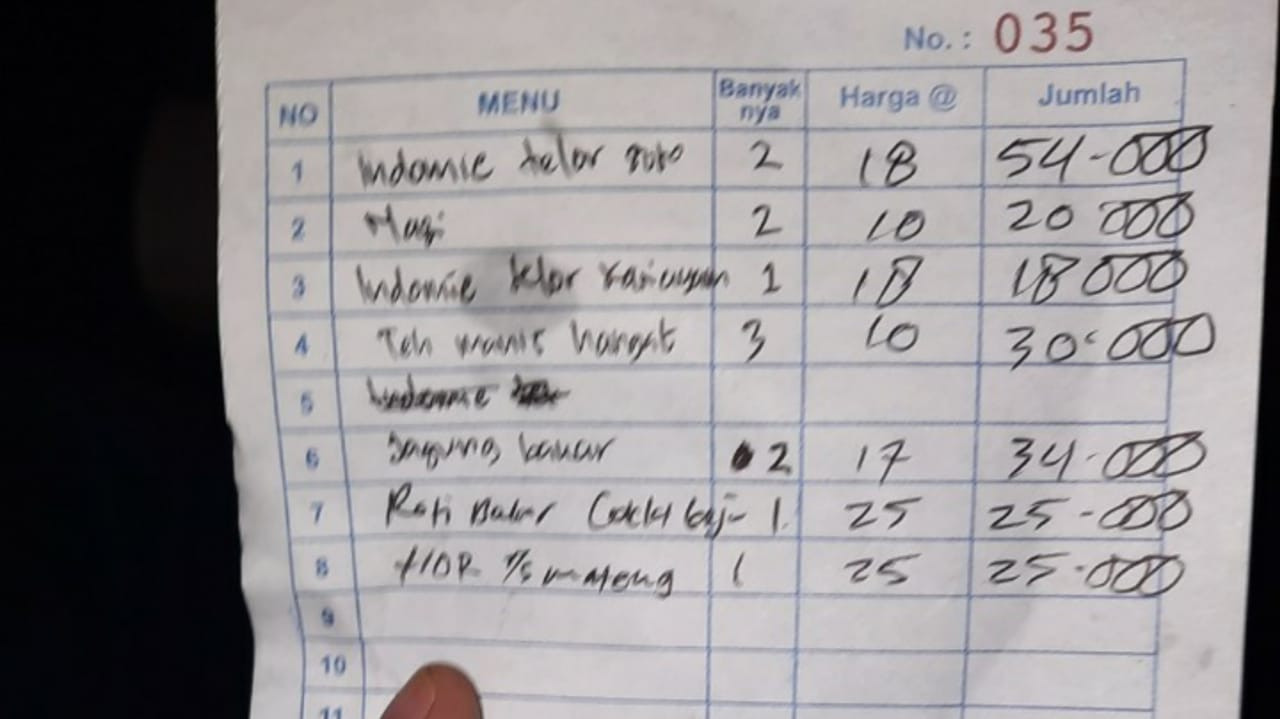 No. : 035
NO MENU Banyak nya Harga @ Jumlah
1 Indomie telor soto 2 18 54-000
2 Nasi 2 10 20 000
3 Indomie telor 1 18 18 000
4 Teh manis hangat 3 10 30.000
5 Indomie
6 Jagung bakar 2 17 34-000
7 Roti Bakar Coklat keju 1. 25 25-000
8 1/2 mateng 1 25 25-000
9
10
11